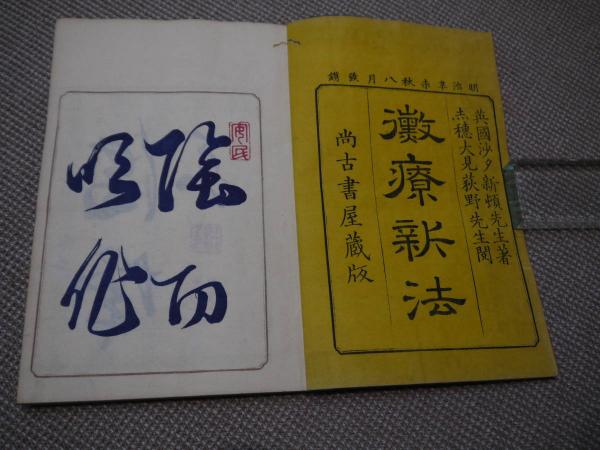 明治辛未秋八月發鐫
英國沙夕新頓先生著
赤穗大見荻野先生閱
黴療新法
尚古書屋藏版
陰